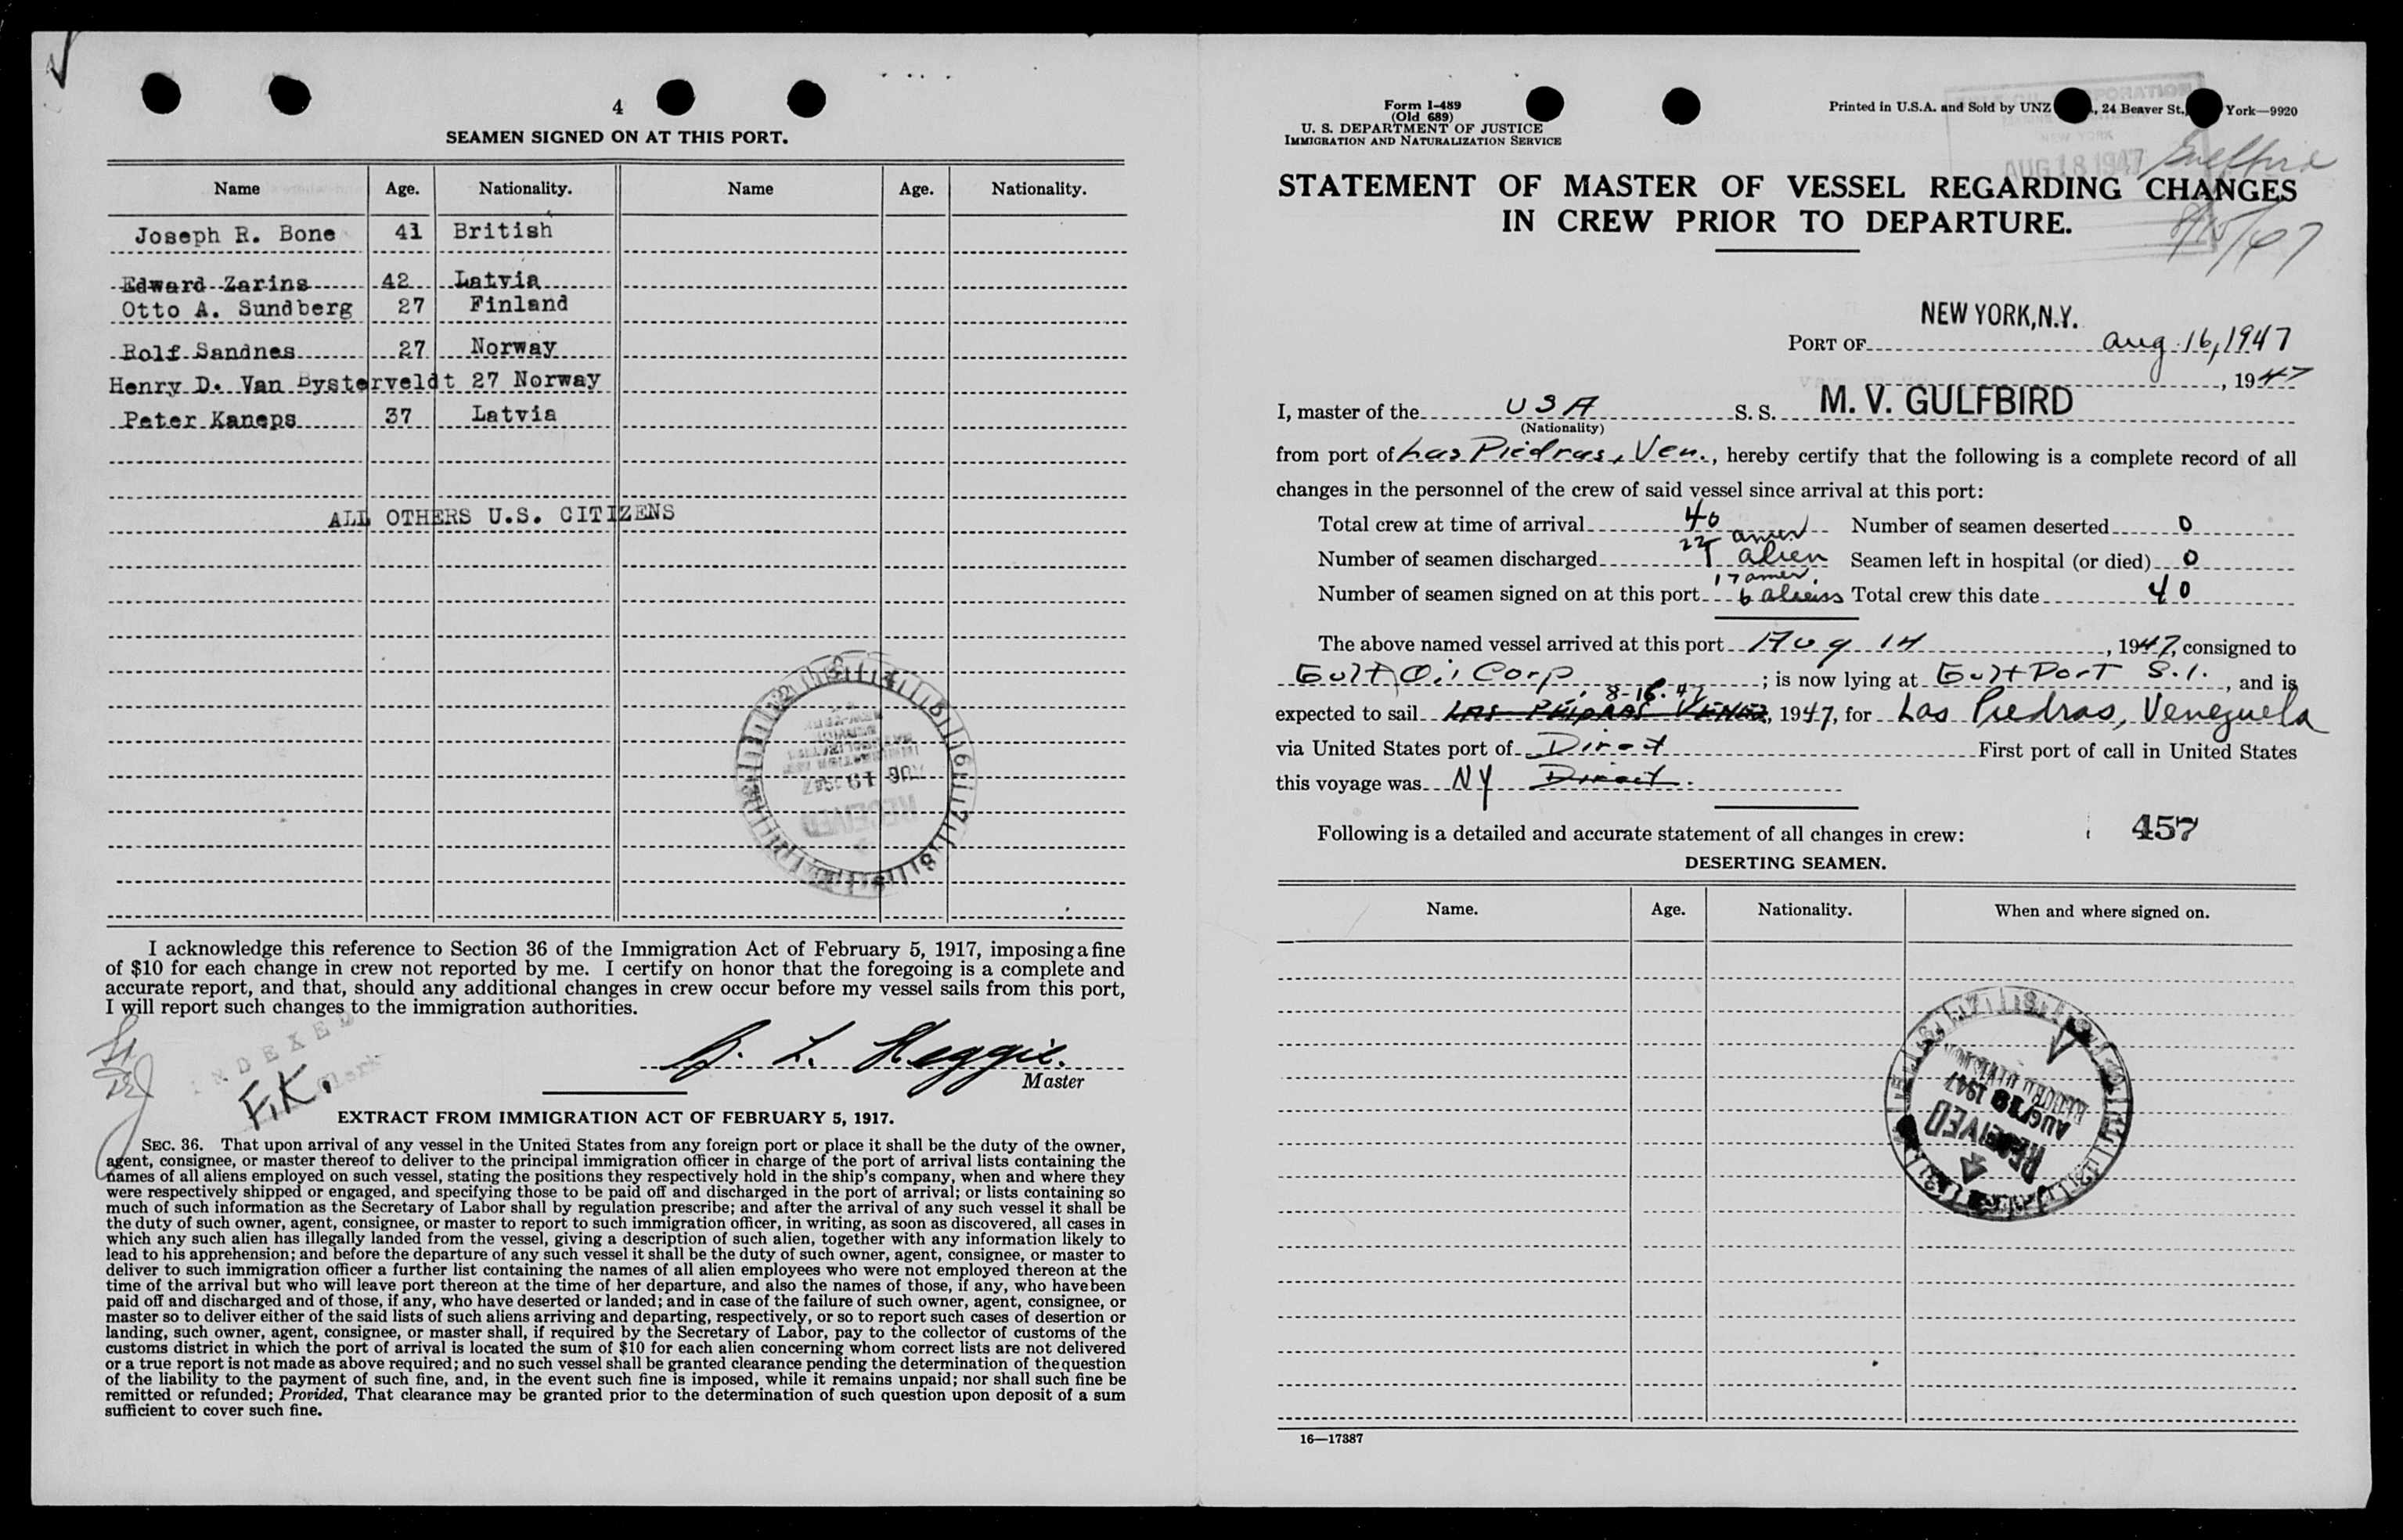 4
SEAMEN SIGNED ON AT THIS PORT.
Name Age. Nationality. Name Age. Nationality.
Joseph R. Bone 41 British
Edward Zarins 42 Latvia
Otto A. Sundberg 27 Finland
Rolf Sandnes 27 Norway
Henry D. Van Bysterveldt 27 Norway
Peter Kaneps 37 Latvia
ALL OTHERS U.S. CITIZENS
AUG 19 1947
RECEIVED
I acknowledge this reference to Section 36 of the Immigration Act of February 5, 1917, imposing a fine
of $10 for each change in crew not reported by me. I certify on honor that the foregoing is a complete and
accurate report, and that, should any additional changes in crew occur before my vessel sails from this port,
I will report such changes to the immigration authorities.
INDEXED
F.K. Clerk
Master
EXTRACT FROM IMMIGRATION ACT OF FEBRUARY 5, 1917.
SEC. 36. That upon arrival of any vessel in the United States from any foreign port or place it shall be the duty of the owner,
agent, consignee, or master thereof to deliver to the principal immigration officer in charge of the port of arrival lists containing the
names of all aliens employed on such vessel, stating the positions they respectively hold in the ship's company, when and where they
were respectively shipped or engaged, and specifying those to be paid off and discharged in the port of arrival; or lists containing so
much of such information as the Secretary of Labor shall by regulation prescribe; and after the arrival of any such vessel it shall be
the duty of such owner, agent, consignee, or master to report to such immigration officer, in writing, as soon as discovered, all cases in
which any such alien has illegally landed from the vessel, giving a description of such alien, together with any information likely to
lead to his apprehension; and before the departure of any such vessel it shall be the duty of such owner, agent, consignee, or master to
deliver to such immigration officer a further list containing the names of all alien employees who were not employed thereon at the
time of the arrival but who will leave port thereon at the time of her departure, and also the names of those, if any, who have been
paid off and discharged and of those, if any, who have deserted or landed; and in case of the failure of such owner, agent, consignee, or
master so to deliver either of the said lists of such aliens arriving and departing, respectively, or so to report such cases of desertion or
landing, such owner, agent, consignee, or master shall, if required by the Secretary of Labor, pay to the collector of customs of the
customs district in which the port of arrival is located the sum of $10 for each alien concerning whom correct lists are not delivered
or a true report is not made as above required; and no such vessel shall be granted clearance pending the determination of the question
of the liability to the payment of such fine, and, in the event such fine is imposed, while it remains unpaid; nor shall such fine be
remitted or refunded; Provided, That clearance may be granted prior to the determination of such question upon deposit of a sum
sufficient to cover such fine.
Form I-489
(Old 689)
U. S. DEPARTMENT OF JUSTICE
IMMIGRATION AND NATURALIZATION SERVICE
Printed in U.S.A. and Sold by UNZ , 24 Beaver St., York—9920
CORPORATION
NEW YORK
AUG 18 1947
Gulfbird
8/15/47
STATEMENT OF MASTER OF VESSEL REGARDING CHANGES
IN CREW PRIOR TO DEPARTURE.
NEW YORK, N.Y.
PORT OF Aug. 16, 1947
, 1947
I, master of the USA S. S. M. V. GULFBIRD
(Nationality)
from port of Las Piedras, Ven., hereby certify that the following is a complete record of all
changes in the personnel of the crew of said vessel since arrival at this port:
Total crew at time of arrival 40 Number of seamen deserted 0
22 amer
Number of seamen discharged 1 alien Seamen left in hospital (or died) 0
17 amer.
Number of seamen signed on at this port 6 aliens Total crew this date 40
The above named vessel arrived at this port Aug 14, 1947, consigned to
Gulf Oil Corp.; is now lying at Gulf Port S.I., and is
8-16-47
expected to sail Las Peidras Venez, 1947, for Las Piedras, Venezuela
via United States port of Direct First port of call in United States
this voyage was NY Direct.
Following is a detailed and accurate statement of all changes in crew:
457
DESERTING SEAMEN.
Name. Age. Nationality. When and where signed on.
RECORD DIVISION
AUG 19 1947
RECEIVED
16—17387